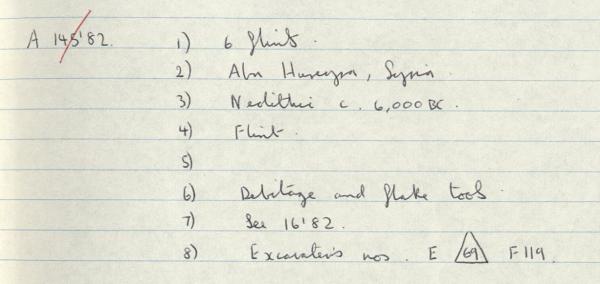 A 145'82. 1) 6 flints.
2) Abu Hureyra, Syria.
3) Neolithic c. 6,000 BC.
4) Flint.
5)
6) Debitage and flake tools.
7) See 16'82.
8) Excavator's nos. E 69 F119.